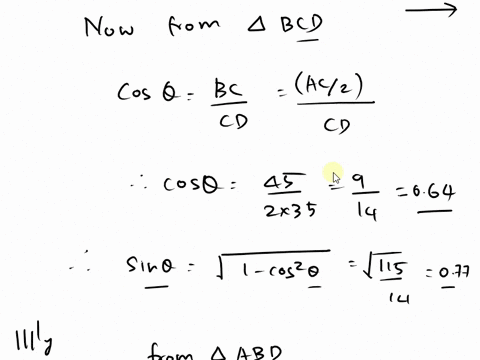 Now from △ BCD
Cos θ = BC/CD = (AC/2)/CD
∴ cosθ = 45/2×35 = 9/14 = 0.64
∴ sinθ = √1-cos²θ = √115/14 = 0.77
|||ly
from △ ABD